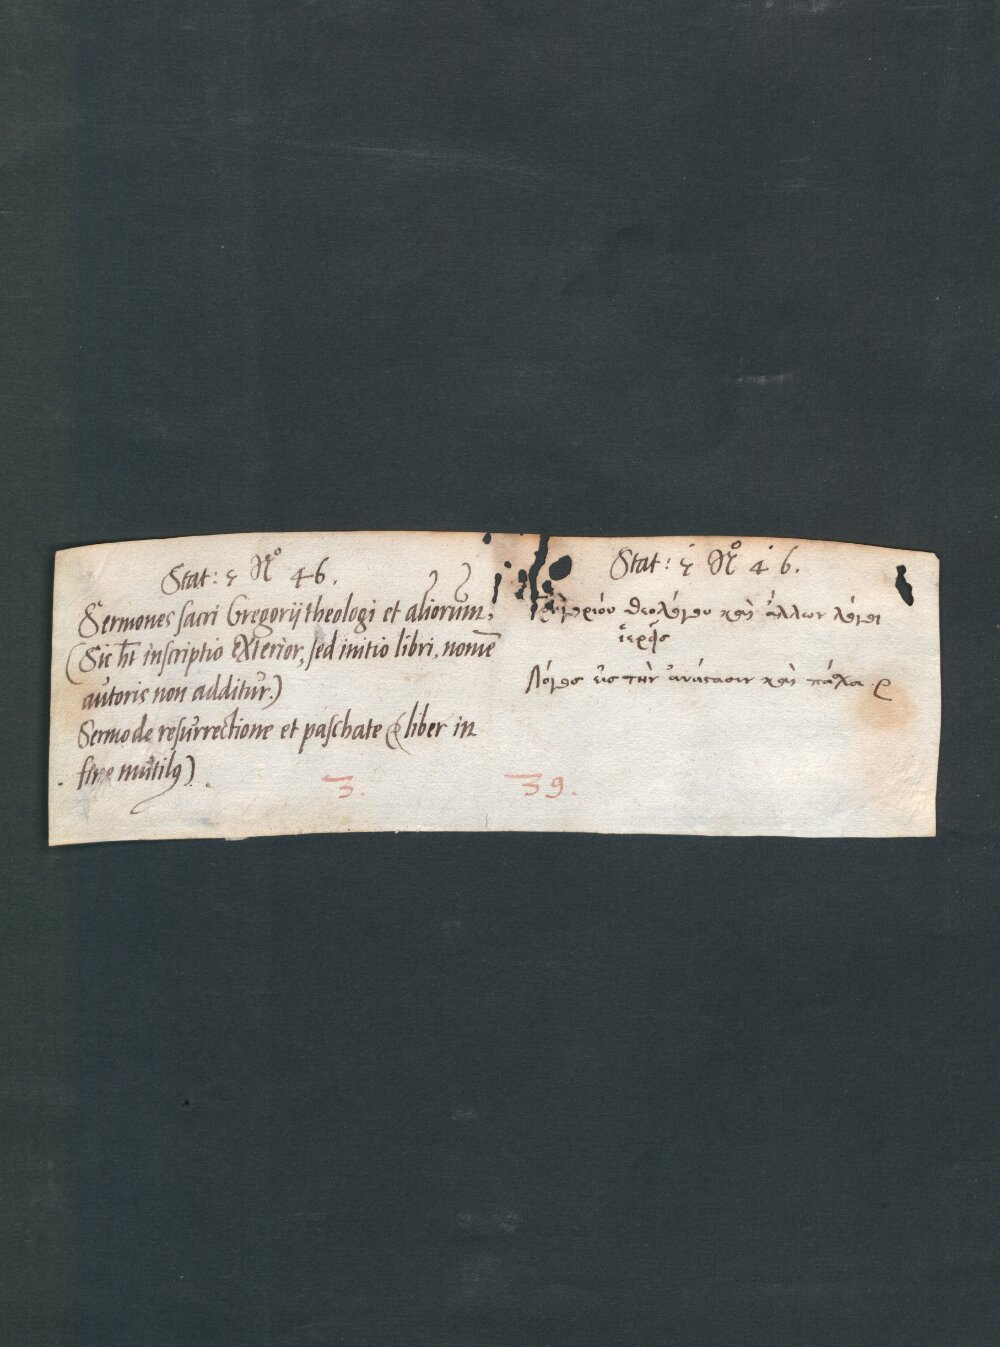 Stat: 5 Nº 46.
Sermones sacri Gregorij theologi et aliorum,
(Sic ht inscriptio exterior, sed initio libri, nomē
autoris non additur.)
Sermo de resurrectione et paschate (liber in
fine mutilꝰ)
3.
Stat: 5 Nº 46.
Γρηγορίου θεολόγου καὶ ἄλλων λόγοι
Λόγος εἰς τὴν ἀνάστασιν καὶ πάσχα.
39.